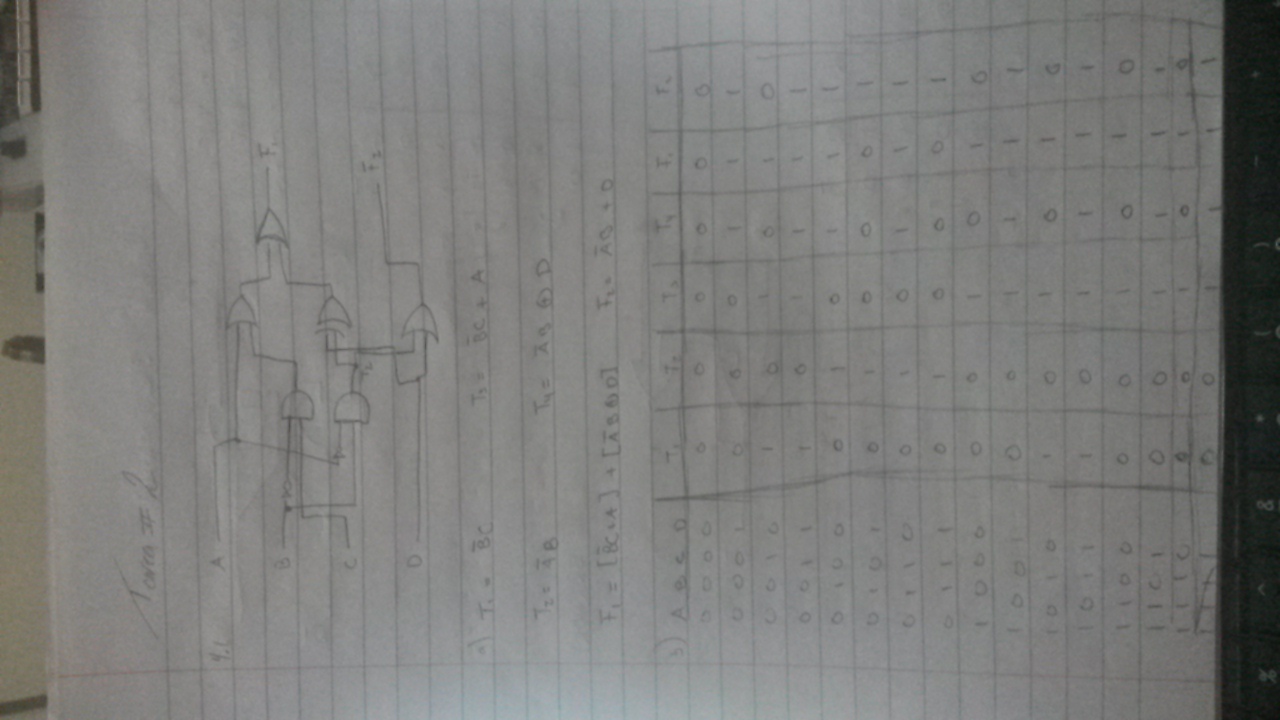 Tarea # 2
4.1 A
B
F₁
C
T₂
F₂
D
a) T₁ = B̅C T₃ = B̅C + A
T₂ = A̅B T₄ = A̅B ⊕ D
F₁ = [B̅C+A] + [A̅B⊕D] F₂ = A̅B + D
b) A B C D T₁ T₂ T₃ T₄ F₁ F₂
0 0 0 0 0 0 0 0 0 0
0 0 0 1 0 0 0 1 1 1
0 0 1 0 1 0 1 0 1 0
0 0 1 1 1 0 1 1 1 1
0 1 0 0 0 1 0 1 1 1
0 1 0 1 0 1 0 0 0 1
0 1 1 0 0 1 0 1 1 1
0 1 1 1 0 1 0 0 0 1
1 0 0 0 0 0 1 0 1 0
1 0 0 1 0 0 1 1 1 1
1 0 1 0 1 0 1 0 1 0
1 0 1 1 1 0 1 1 1 1
1 1 0 0 0 0 1 0 1 0
1 1 0 1 0 0 1 1 1 1
1 1 1 0 0 0 1 0 1 0
1 1 1 1 0 0 1 1 1 1
% ^ & * ( ) - +